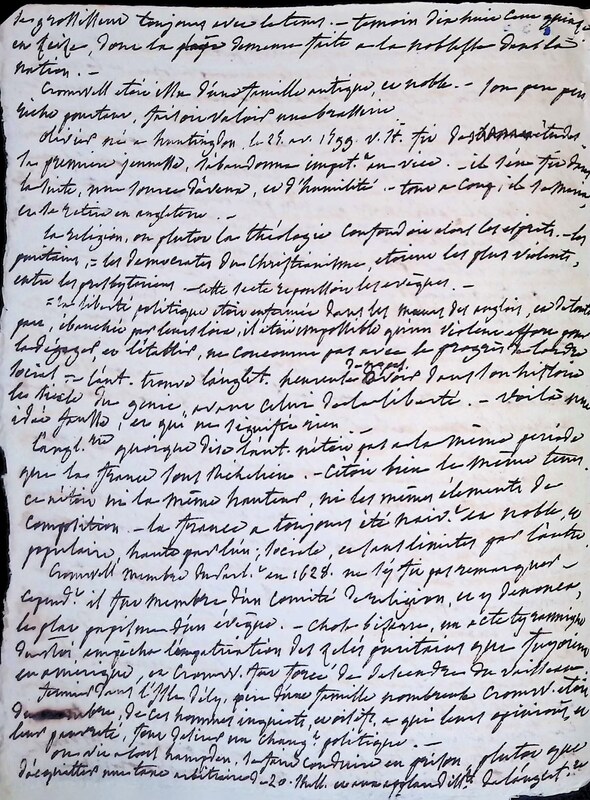 toujours avec le tems. — temoin dix huit cent quinze
en seize, dont la page demeure faite a la noblesse dans la
nation. —
Cromwell etoit issu d'une famille antique, et noble. — son pere peu
riche pourtant, faisoit valoir une brasserie
olivier né a huntingdon, le 25. av. 1599. v. st. fit des études
sa premiere jeunesse, s'abandonna au vice. — il s'en fit dans
la suite, une source d'aveux, et d'humilité. — tout a coup, il se maria
et se retira en angleterre. —
la religion, ou plutot la théologie confondoit alors les esprits. — les
puritains, = les democrates du Christianisme, etoient les plus violents,
entre les presbyteriens — cette secte repoussoit les evêques. —
= la liberté politique etoit enfermée dans les mœurs des anglois, et de toute
part, ebauchée par leurs loix, il etoit impossible qu'un violent effort pour
la dégager, et l'établir, ne concourut pas avec le progrès de l'ordre
social — l'aut. trouve l'anglet. heureuse d'avoir dans son histoire
le siecle du genie, avant celui de la liberté. — voilà une
idée fausse, et qui ne signifie rien
l'angl.re quoique dise l'aut. n'étoit pas a la même période
que la france sous Richelieu. — C'etoit bien le même tems.
ce n'etoit ni la même hauteur, ni les mêmes élements de
composition. — la france a toujours été et noble, et
populaire, haute par l'un, sociale, et sans limites par l'autre.
Cromwell membre du parl.t en 1628. ne s'y fit pas remarquer —
cepend.t il fut membre d'un Comité de religion, et y denonca,
le plat papisme d'un évêque. — Chose bizarre, un acte tyrannique
du roi empecha l'expatriation des zelés puritains que fuyoient
en amérique, et Cromw. fut forcé de descendre du vaisseau.
fermier dans l'isle d'ély, père d'une famille nombreuse Cromw. etoit
du nombre, de ces hommes inquiets, et actifs, a qui leurs opinions, et
leur pauvreté, font desirer un chang.t politique. —
on vit alors hampden, se faire conduire en prison, plutot que
d'acquitter une taxe arbitraire de 20. shell. et aux applaudiss.ts de l'anglet.re